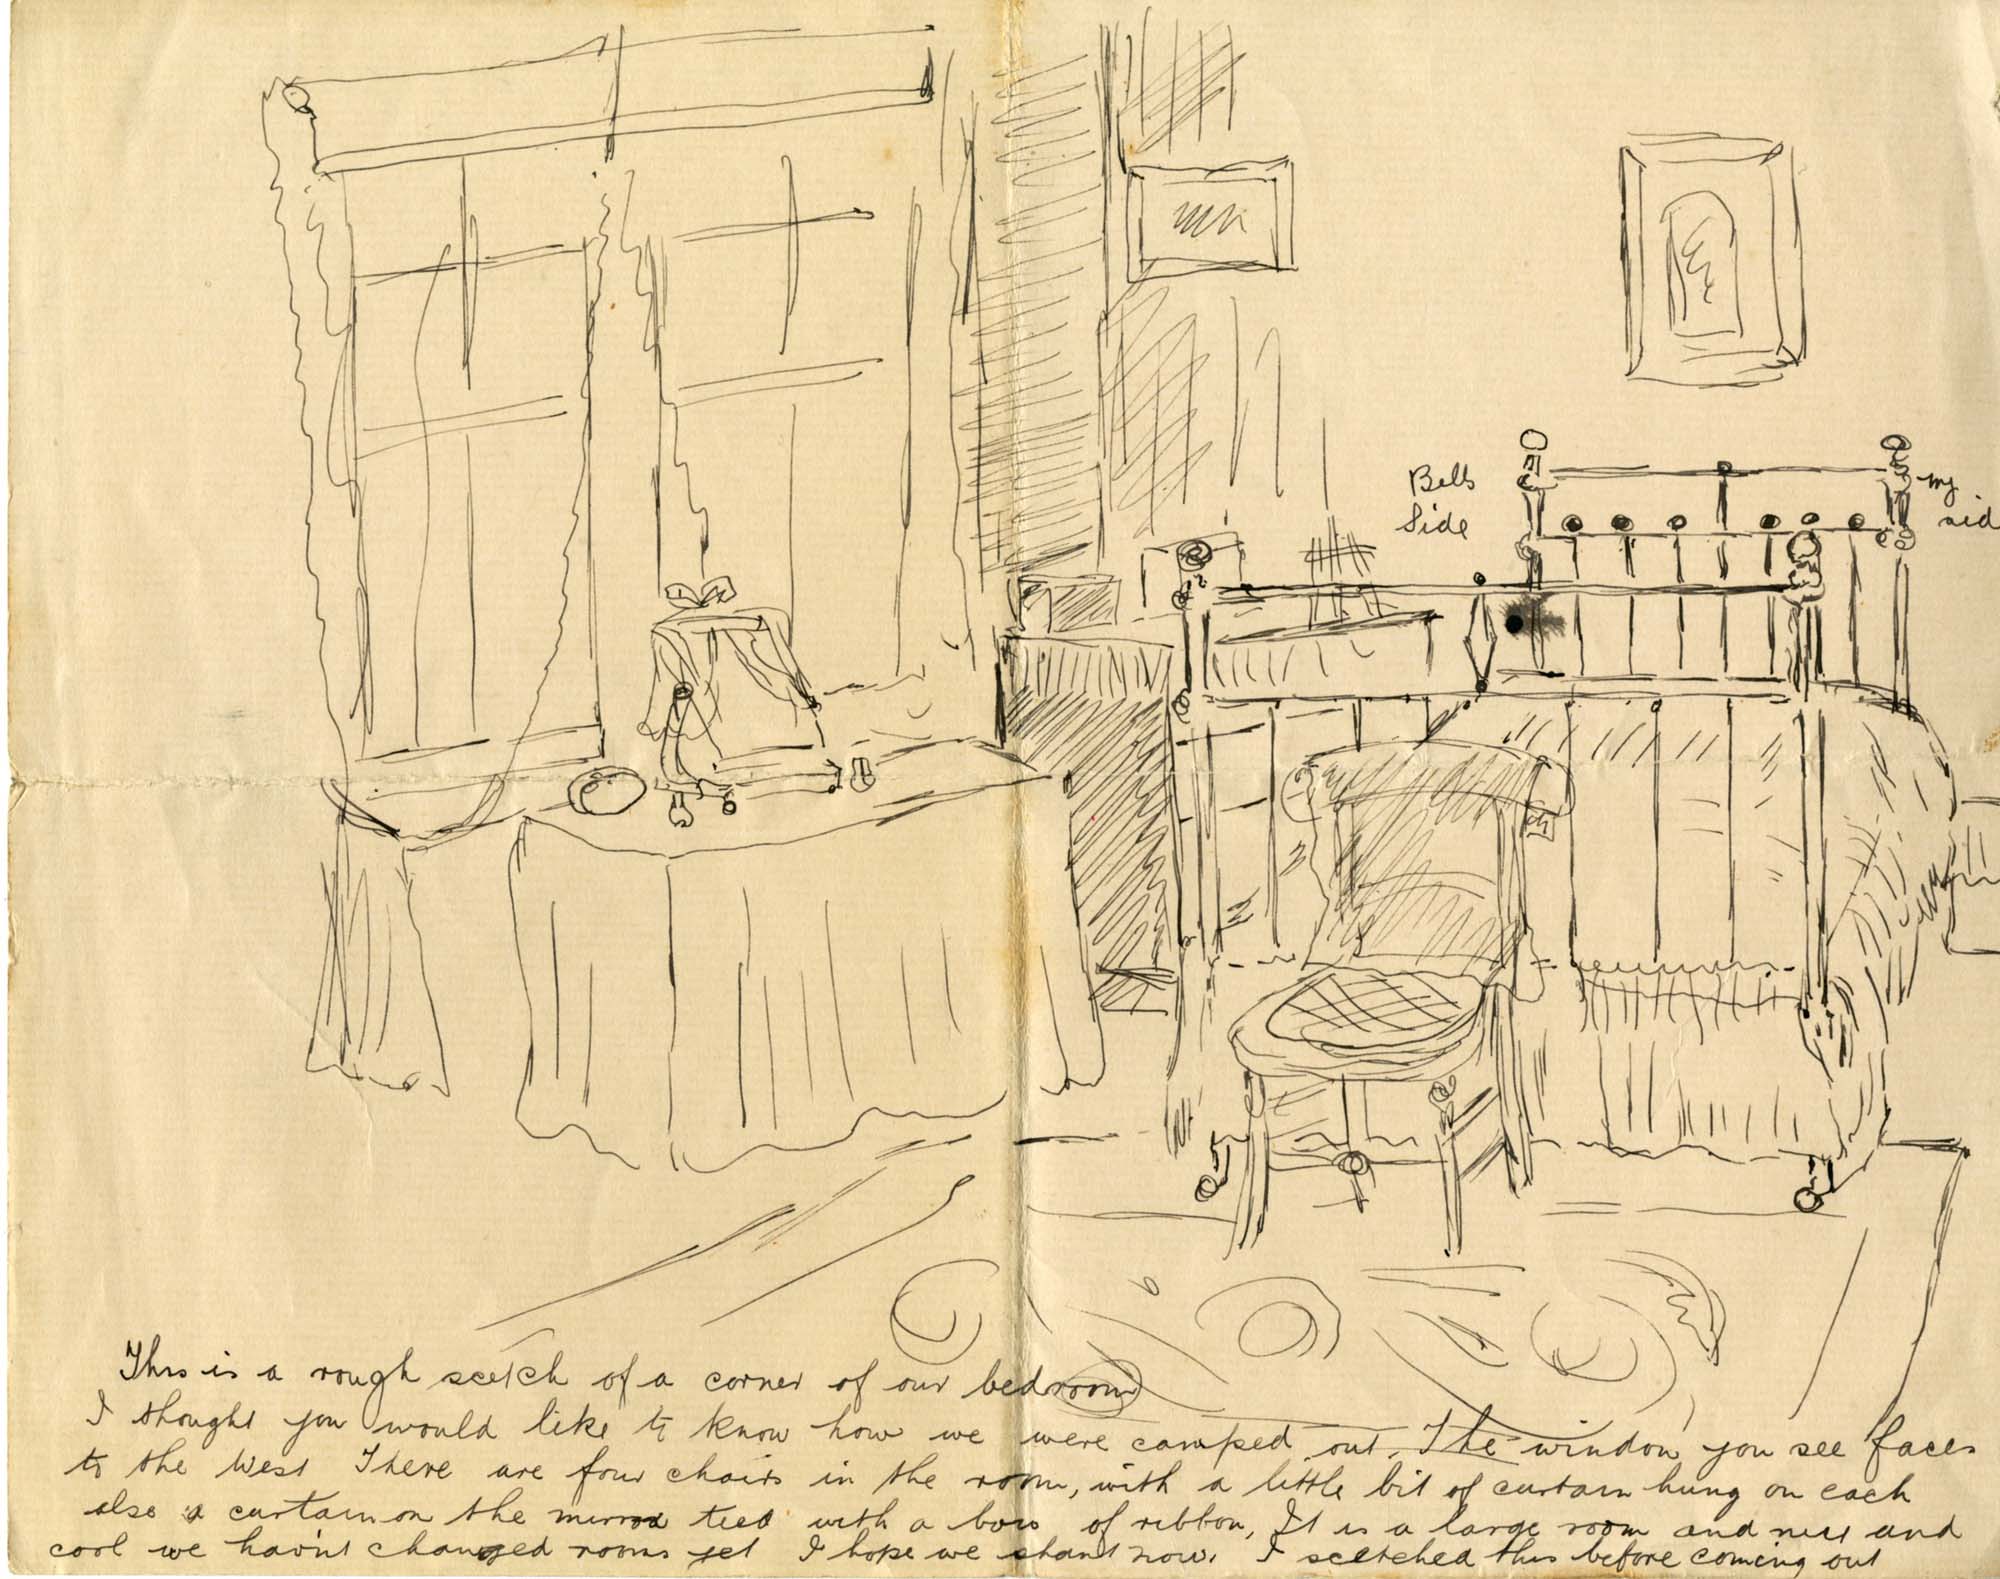 Bells
Side
my
sid
This is a rough scetch of a corner of our bedroom
I thought you would like to know how we were camped out. The window you see faces
to the West There are four chairs in the room, with a little bit of curtain hung on each
also a curtain on the mirror tied with a bow of ribbon, It is a large room and nice and
cool we havn't changed rooms yet I hope we shant now. I scetched this before coming out